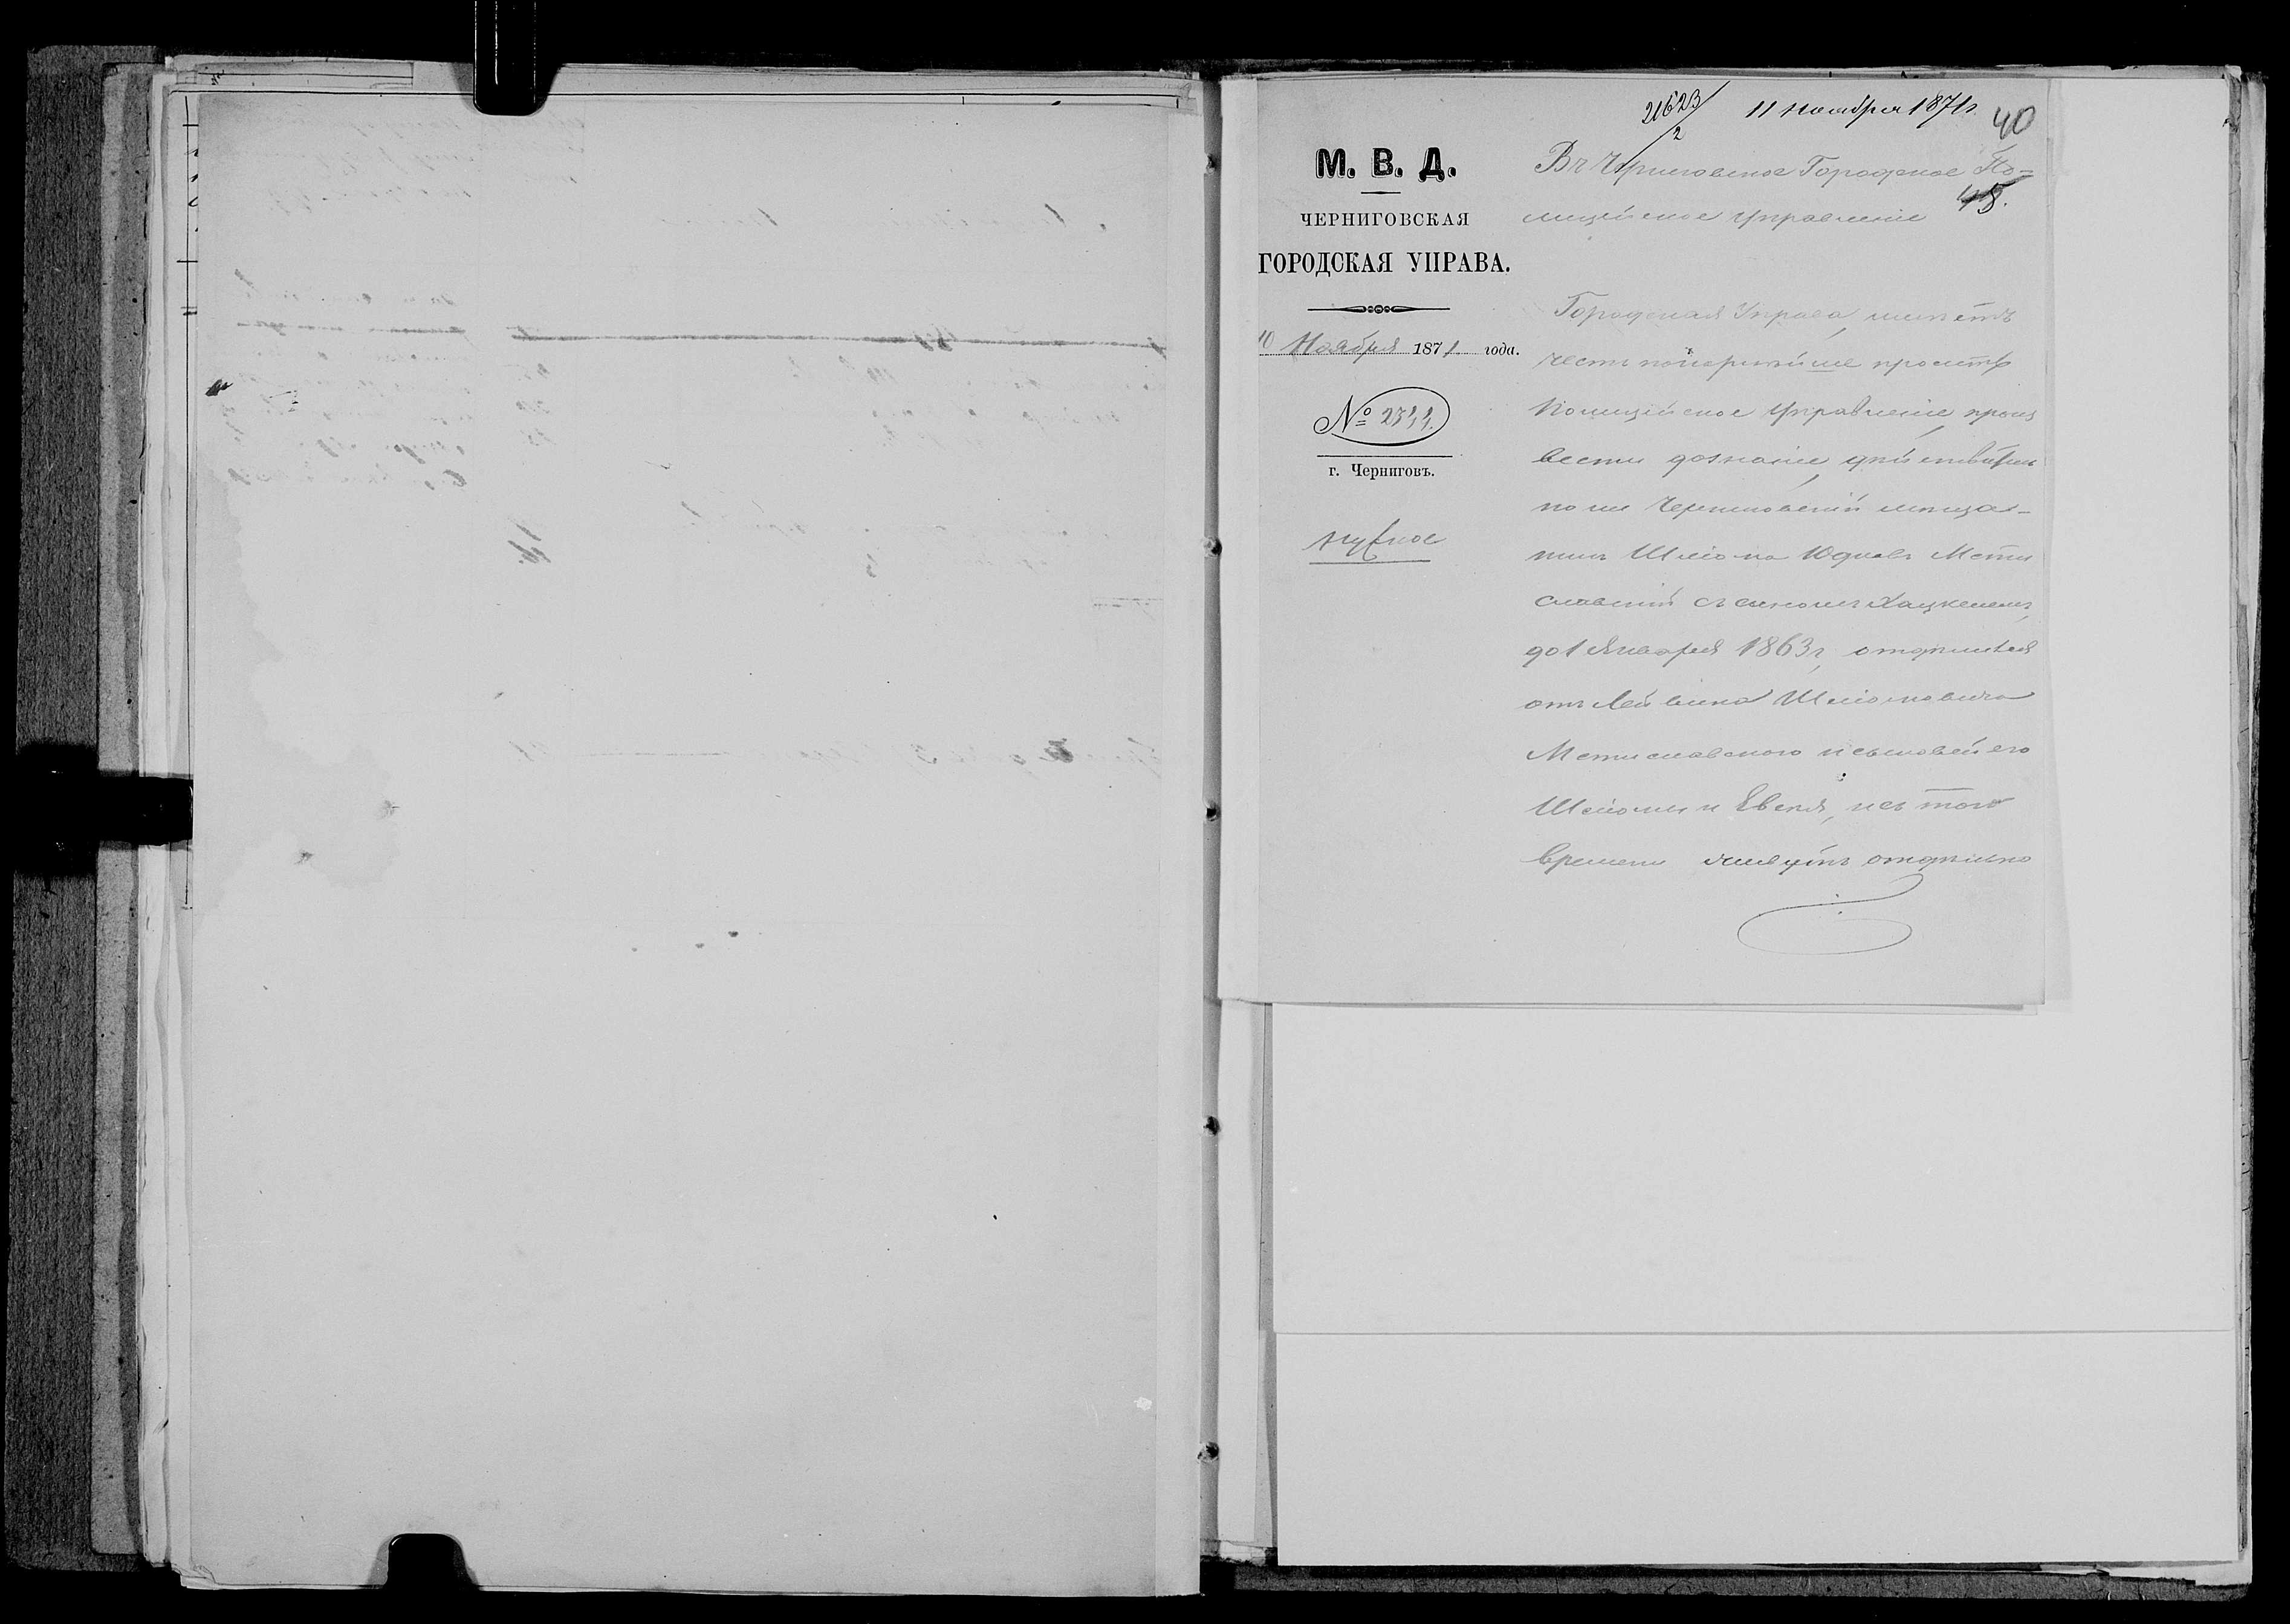 2623/2 11 ноября 1871 г.
40
М. В. Д.
ЧЕРНИГОВСКАЯ
ГОРОДСКАЯ УПРАВА.
10 Ноября 1871 года.
№ 2344.
г. Черниговъ.
нужное
Въ Черниговское Городское По-
лицейское Управленіе
45.
Городская Управа, имѣетъ
честь покорнѣйше проситъ
Полицейское Управленіе, произ
вести дознаніе, дѣйствитель
но ли Черниговскій мѣща-
нинъ Шліома Юдовъ Мсти
славскій съ сыномъ Хацкелемъ,
до 1 Января 1863 г, отдѣлился
отъ Лейвика Шліомовича
Мстиславского и сыновей его
Шліомы и Евеля, и съ того
времени живутъ отдѣльно